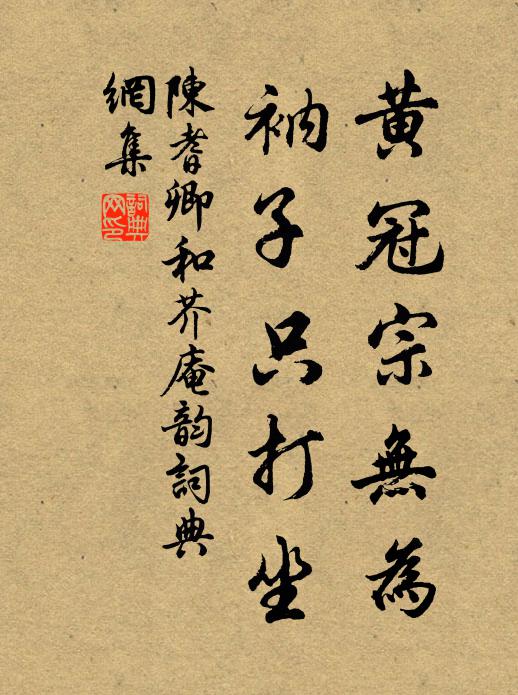 黄冠宗無為
衲子只打坐
陳耆卿和芥庵韵詞典
網集
詞典
网印